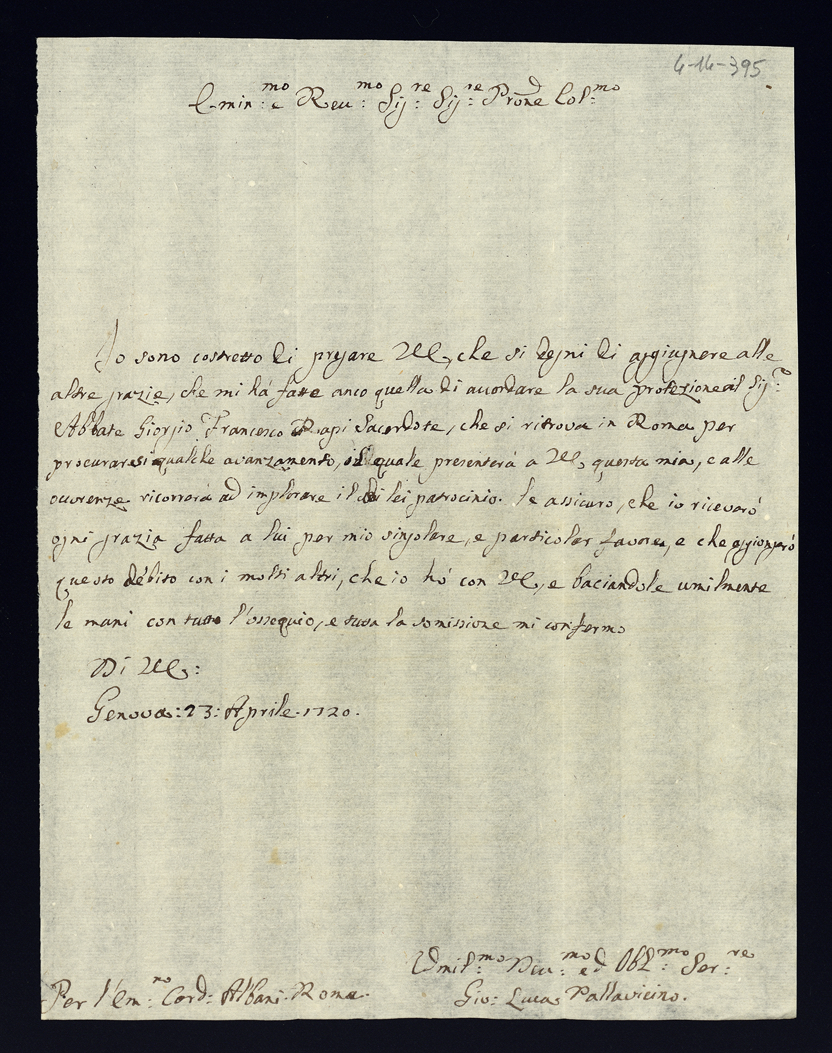 4-14-395
Emin:mo e Reu:mo Sig:re Sig:re Prone Col:mo
Io sono costretto di pregare VE, che si degni di aggiugnere alle
altre grazie, che mi há fatte anco quella di accordare la sua protezione al Sig:r
Abbate Giorgio Francesco Rapi Sacerdote, che si ritrova in Roma per
procurarsi qualche avanzamento, il quale presenterá a VE, questa mia, e alle
occorrenze ricorrerá ad implorare il di lei patrocinio. Le assicuro, che io riceveró
ogni grazia fatta a lui per mio singolare, e particolar favore, e che aggiongeró
questo débito con i molti altri, che io hó con VE, e baciandole umilmente
le mani con tutto l'ossequio, e tutta la somissione mi confermo
Di VE:
Genova: 23: Aprile. 1720.
Umil:mo Deu:mo ed Obl:mo Ser:re
Per l'Em:mo Card: Albani. Roma.
Gio: Luca Pallavicino.